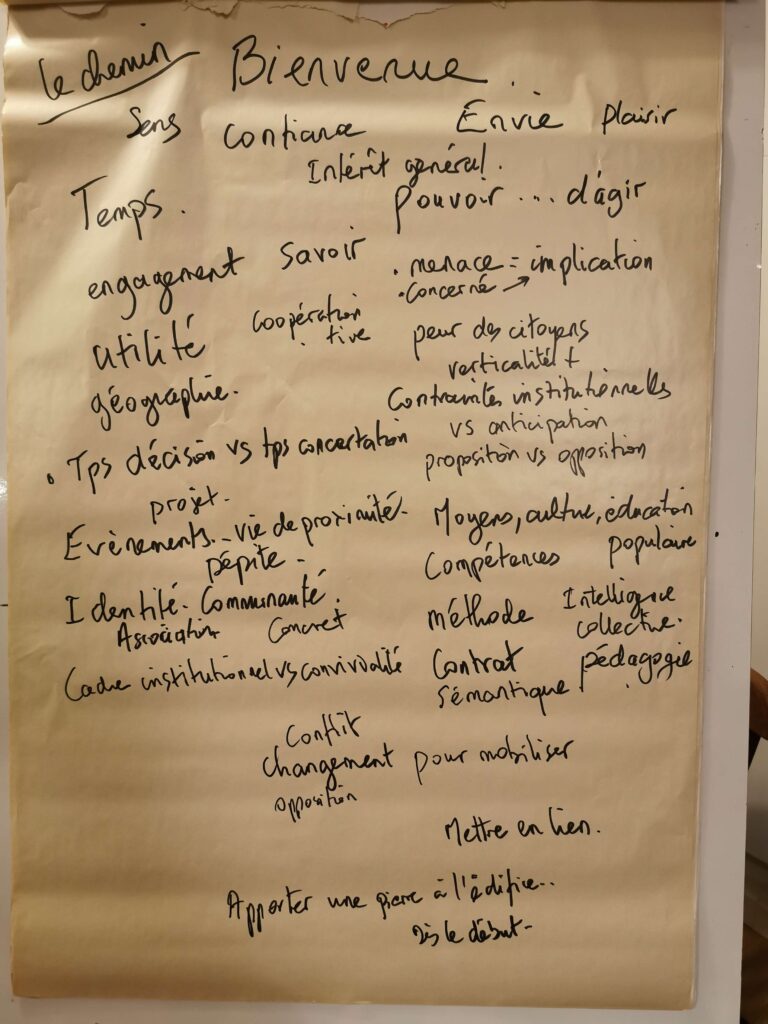 le chemin
Bienvenue.
Sens confiance Envie plaisir
Intérêt général.
Temps. Pouvoir ... d'agir
engagement savoir
. menace = implication
. concerné →
utilité coopération
. tive
géographie.
peur des citoyens
verticalité +
Contraintes institutionnelles
vs anticipation
proposition vs opposition
. Tps décision vs tps concertation
projet.
Evènements.. vie de proximité.
pépite.
Identité. Communauté.
Association Concret
Cadre institutionnel vs convivialité
Moyens, culture, éducation
Compétences populaire
méthode Intelligence
collective.
Contrat pédagogie
sémantique
Conflit
changement pour mobiliser
opposition
Mettre en lien.
Apporter une pierre à l'édifice..
Dès le début-